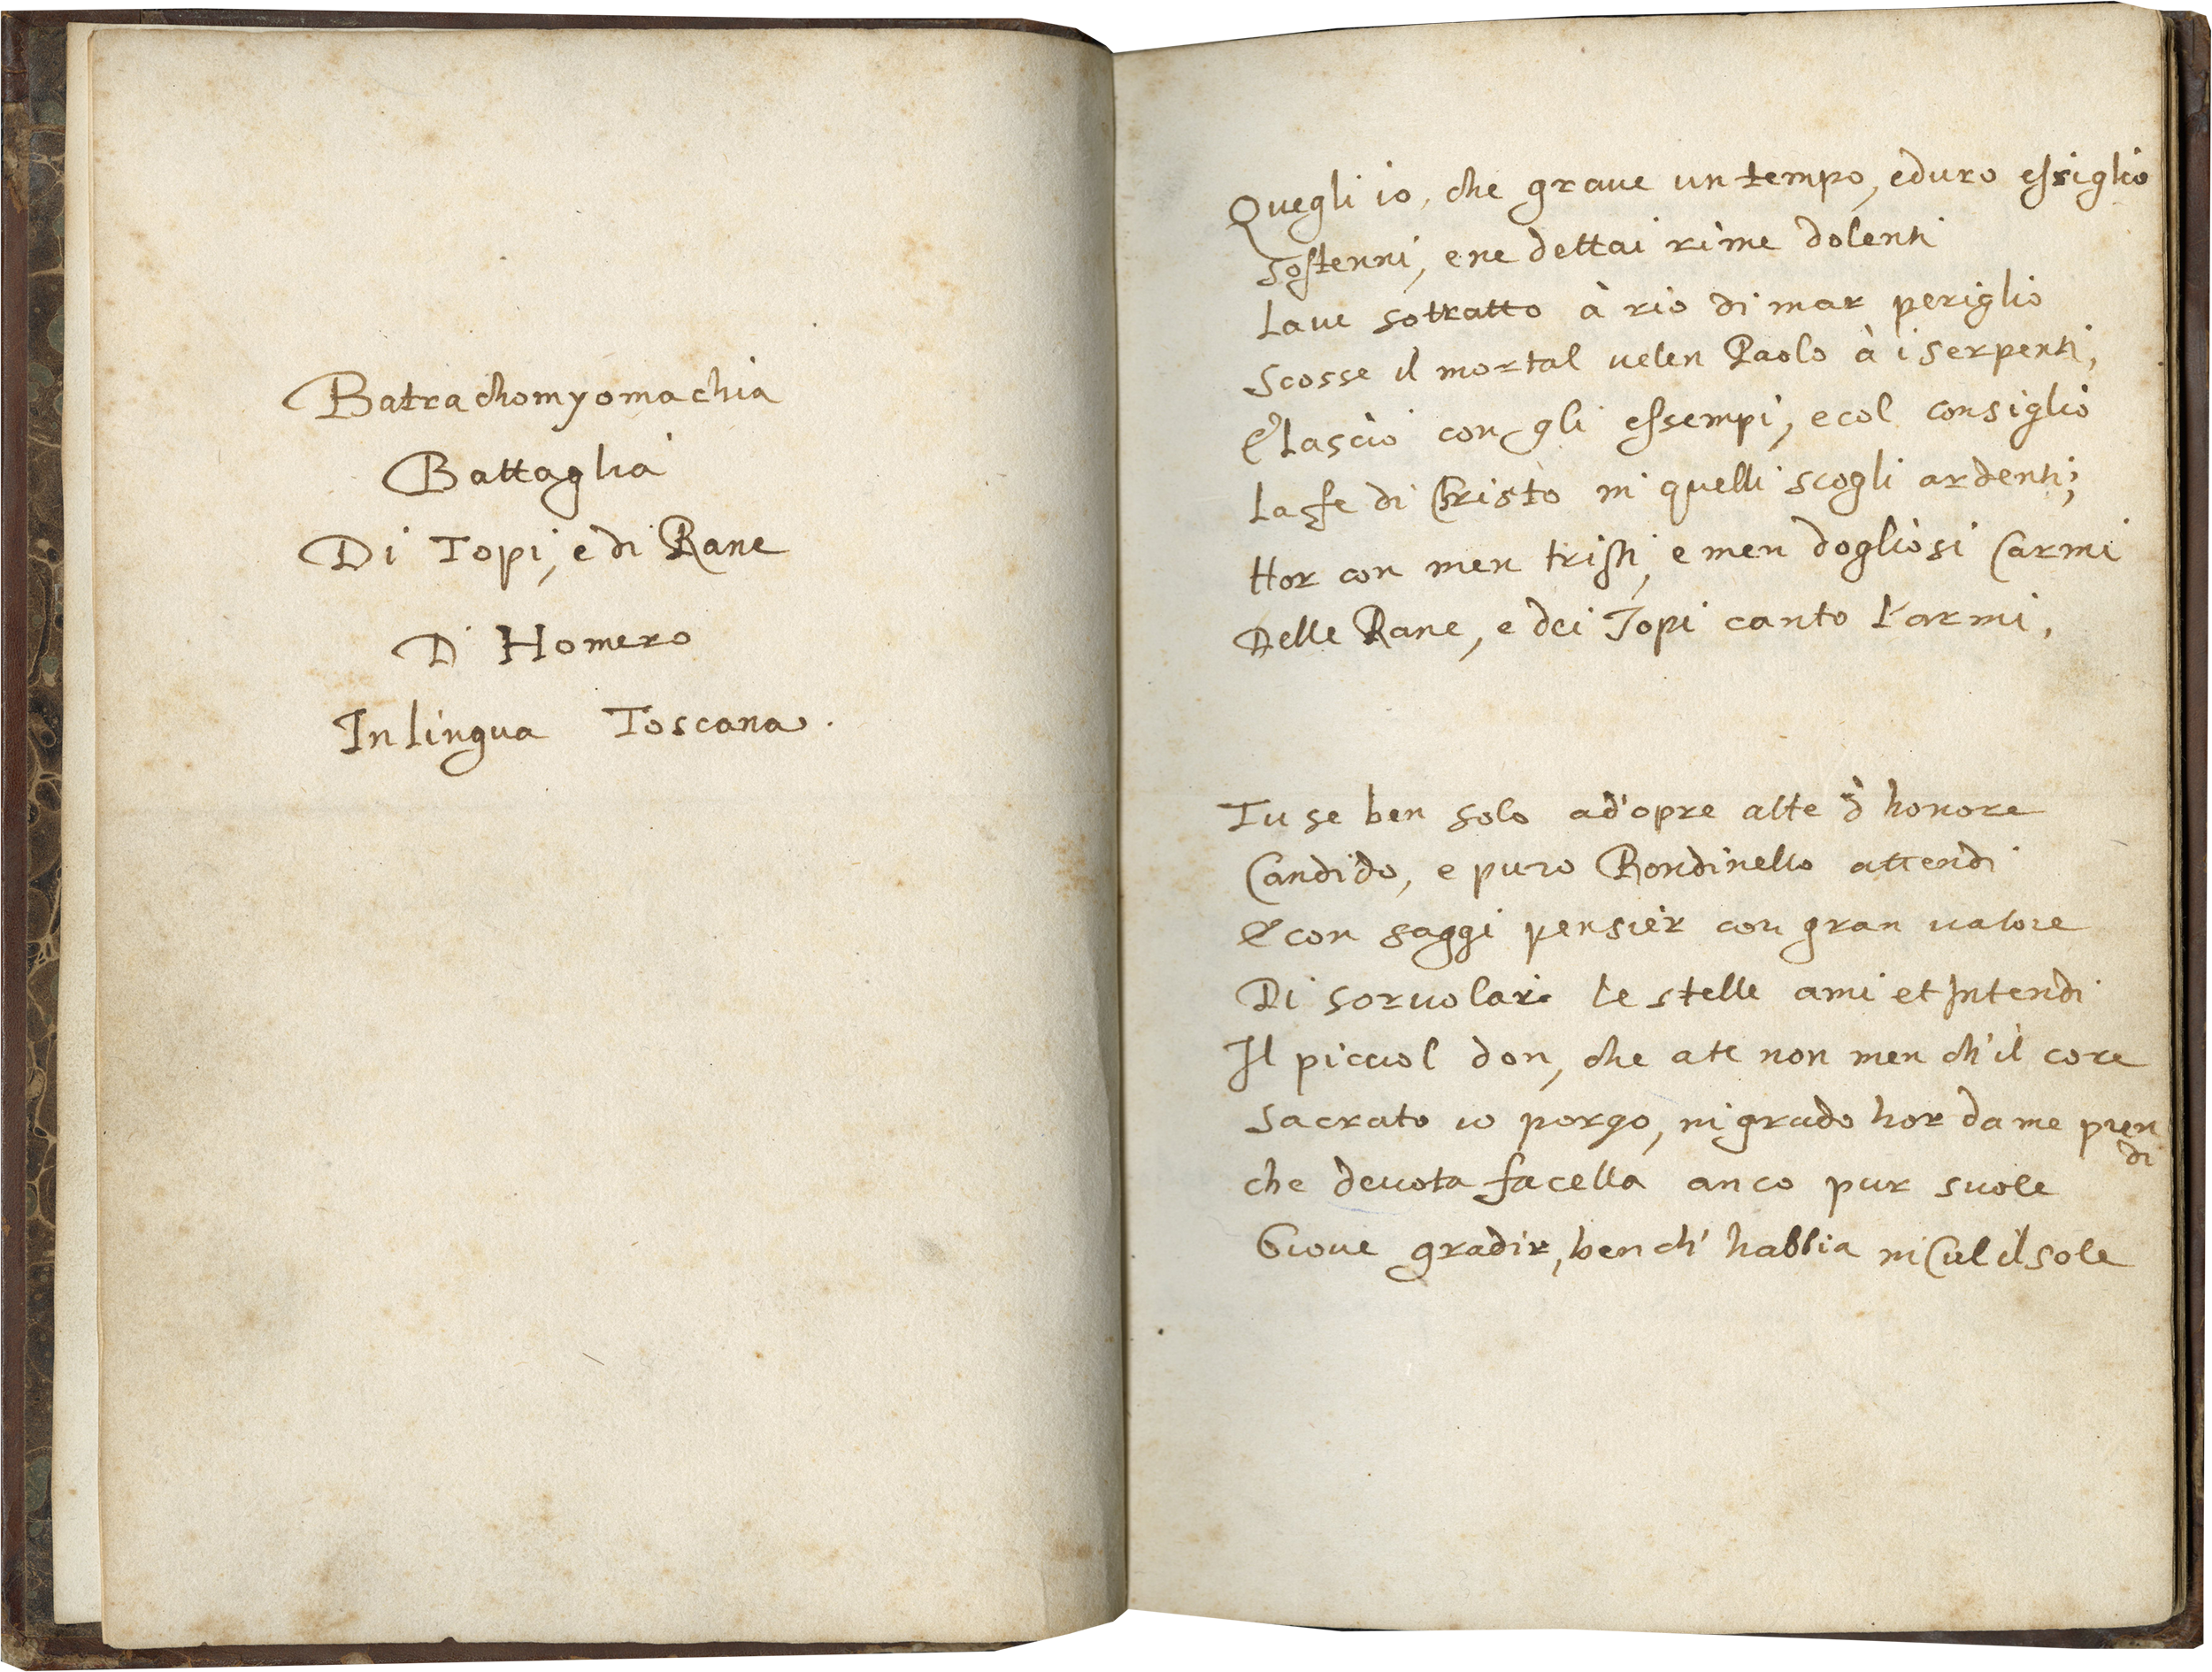 Batrachomyomachia
Battaglia
Di Topi, e di Rane
D' Homero
In lingua Toscana.
Quegli io, che graue un tempo, e duro essiglio
Sostenni, e ne dettai rime dolenti
Laue sottratto à rio di mar periglio
Scosse il mortal uelen Paolo à i serpenti,
E lasciò con gli essempi, e col consiglio
La fe di Christo in quelli scogli ardenti;
Hor con men tristi, e men dogliosi Carmi
Delle Rane, e dei Topi canto l'armi,
Tu se ben solo ad'opre alte d'honore
Candido, e puro Rondinello attendi
E con saggi pensier con gran ualore
Di soruolare le stelle ami et Intendi
Il picciol don, che a te non men ch'il core
Sacrato io porgo, in grado hor da me pren
di
che deuota facella anco pur suole
Gioue gradir, ben ch' habbia in Ciel il sole